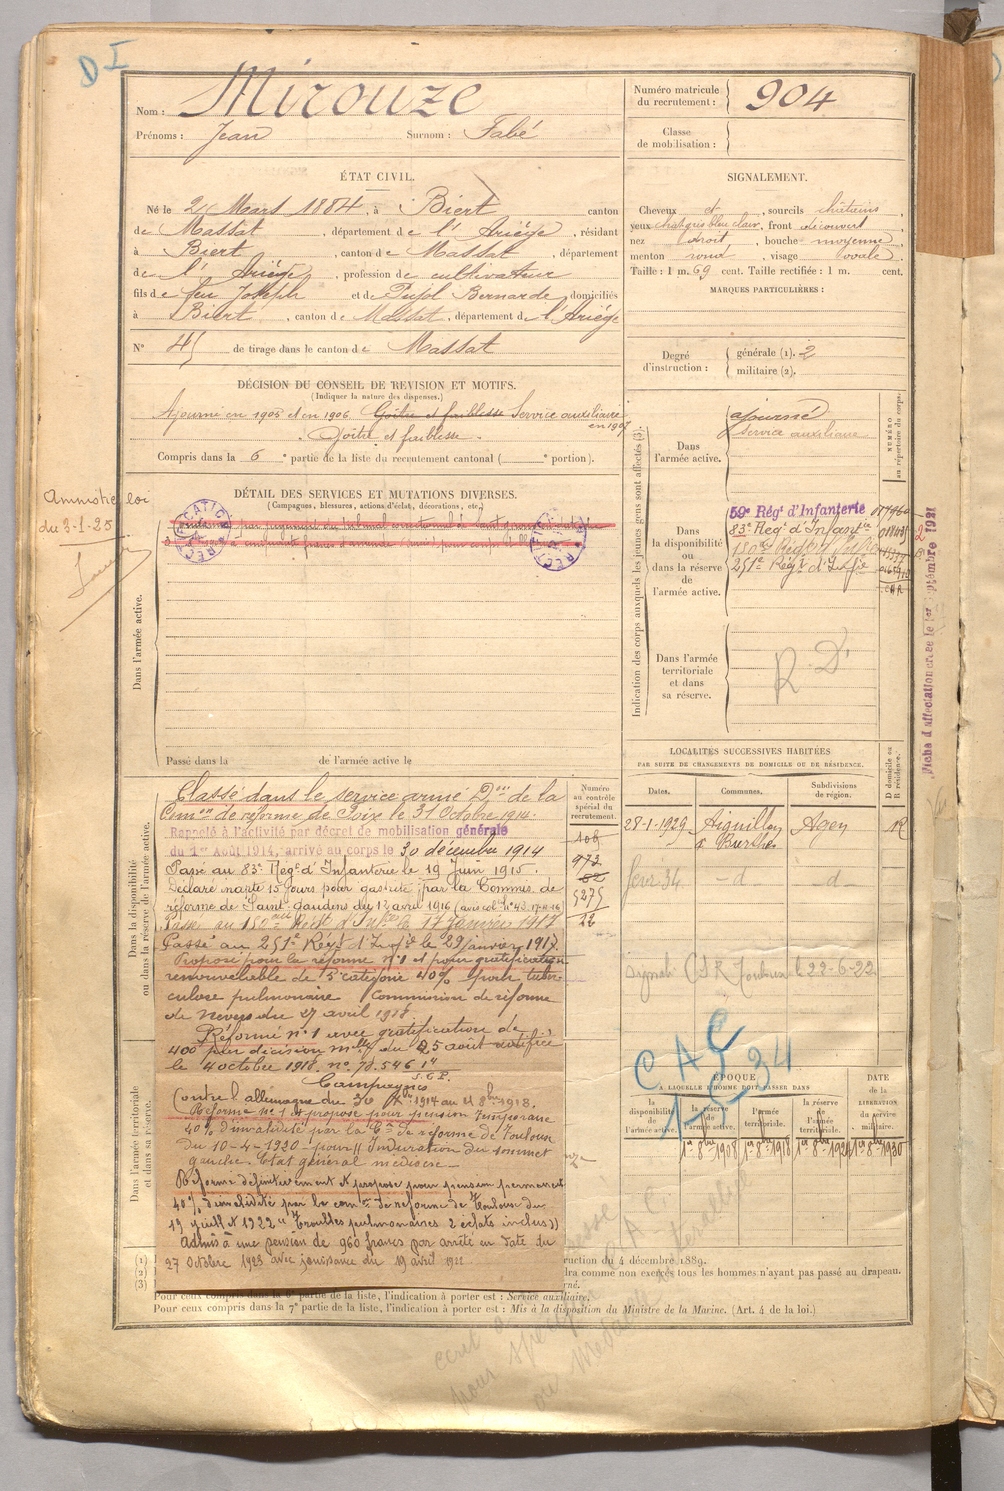 D I
Nom : Mirouze
Prénoms : Jean Surnom : Fabé
Numéro matricule
du recrutement : 904
Classe
de mobilisation :
ÉTAT CIVIL.
Né le 2 Mars 1884, à Biert canton
de Massat, département de l'Ariège, résidant
à Biert, canton de Massat, département
de l'Ariège, profession de cultivateur
fils de feu Joseph et de Pujol Bernarde, domiciliés
à Biert, canton de Massat, département de l'Ariège
N° 45 de tirage dans le canton de Massat
SIGNALEMENT.
Cheveux et, sourcils châtains,
yeux bleu clair, front découvert,
nez droit, bouche moyenne,
menton rond, visage ovale.
Taille : 1 m. 69 cent. Taille rectifiée : 1 m. cent.
MARQUES PARTICULIÈRES :
Degré
d'instruction :
générale (1). 2
militaire (2).
DÉCISION DU CONSEIL DE REVISION ET MOTIFS.
(Indiquer la nature des dispenses.)
Ajourné en 1905 et en 1906. Goitre et faiblesse Service auxiliaire
en 1907
Goitre et faiblesse.
Compris dans la 6e partie de la liste du recrutement cantonal ( e portion).
DÉTAIL DES SERVICES ET MUTATIONS DIVERSES.
(Campagnes, blessures, actions d'éclat, décorations, etc.)
Amnistie loi
du 3-1-25
Dans l'armée active.
Passé dans la de l'armée active le
Indication des corps auxquels les jeunes gens sont affectés (3).
NUMÉRO
au répertoire du corps.
Dans
l'armée active.
ajourné
Service auxiliaire
Dans
la disponibilité
ou
dans la réserve
de
l'armée active.
59e Régt d'Infanterie
83e Régt d'Infanterie
150e Régt d'Infie
251e Régt d'Infie
Dans l'armée
territoriale
et dans
sa réserve.
R. D.
Fiche d'affectation créée le 1er Septembre 1921
LOCALITÉS SUCCESSIVES HABITÉES
PAR SUITE DE CHANGEMENTS DE DOMICILE OU DE RÉSIDENCE.
Dates. Communes. Subdivisions
de région. D domicile ou
R résidence.
28-1-1929 Aiguillon Agen R
févr 34 -d- -d-
Dans la disponibilité
ou dans la réserve de l'armée active.
Numéro
au contrôle
spécial du
recrutement.
973
5275
22
Classé dans le service armé Don de la
Comon de réforme de Foix le 31 Octobre 1914.
Rappelé à l'activité par décret de mobilisation générale
du 1er Août 1914, arrivé au corps le 30 décembre 1914
Passé au 83e Régt d'Infanterie le 19 Juin 1915.
Déclaré inapte 15 jours pour gastrite par la Commis. de
réforme de Saint-Gaudens du 12 avril 1916
Passé au 150e Régt d'Infie le 17 janvier 1917
Passé au 251e Régt d'Infie le 29 janvier 1917.
Proposé pour la réforme n°1 et pour gratification
renouvelable de 5e catégorie 40% pour tuber-
culose pulmonaire Commission de réforme
de Nevers du 27 avril 1918.
Réformé n°1 avec gratification de
400 par décision mlle du 25 août notifiée
le 4 octobre 1918. n° 70.546
Campagnes
Contre l'Allemagne du 30 Xbre 1914 au 4 8bre 1918.
Réformé n° 1 et proposé pour pension temporaire
40% d'invalidité par la Con de réforme de Toulouse
du 10-4-1920 pour "Induration du sommet
gauche. Etat général médiocre_
Réformé définitivement et proposé pour pension permanente
40% d'invalidité par la comon de réforme de Toulouse du
19 juillet 1922 "Troubles pulmonaires 2 éclats inclus"
Admis à une pension de 960 francs par arrêté en date du
27 Octobre 1923 avec jouissance du 19 avril 1922
Dans l'armée territoriale
et dans sa réserve.
C A C
1-5-34
ÉPOQUE
À LAQUELLE L'HOMME DOIT PASSER DANS
DATE
DE LA
LIBÉRATION
du service
militaire.
la
disponibilité
de l'armée active.
la réserve
de
l'armée active.
l'armée
territoriale.
la réserve
de
l'armée
territoriale.
1er 8bre 1908 1er 8bre 1918 1er 8bre 1924 1er 8bre 1930
(1)
(2)
(3)
ruction du 4 décembre 1889.
dra comme non exercés tous les hommes n'ayant pas passé au drapeau.
Pour ceux compris dans la 6e partie de la liste, l'indication à porter est : Service auxiliaire.
Pour ceux compris dans la 7e partie de la liste, l'indication à porter est : Mis à la disposition du Ministre de la Marine. (Art. 4 de la loi.)